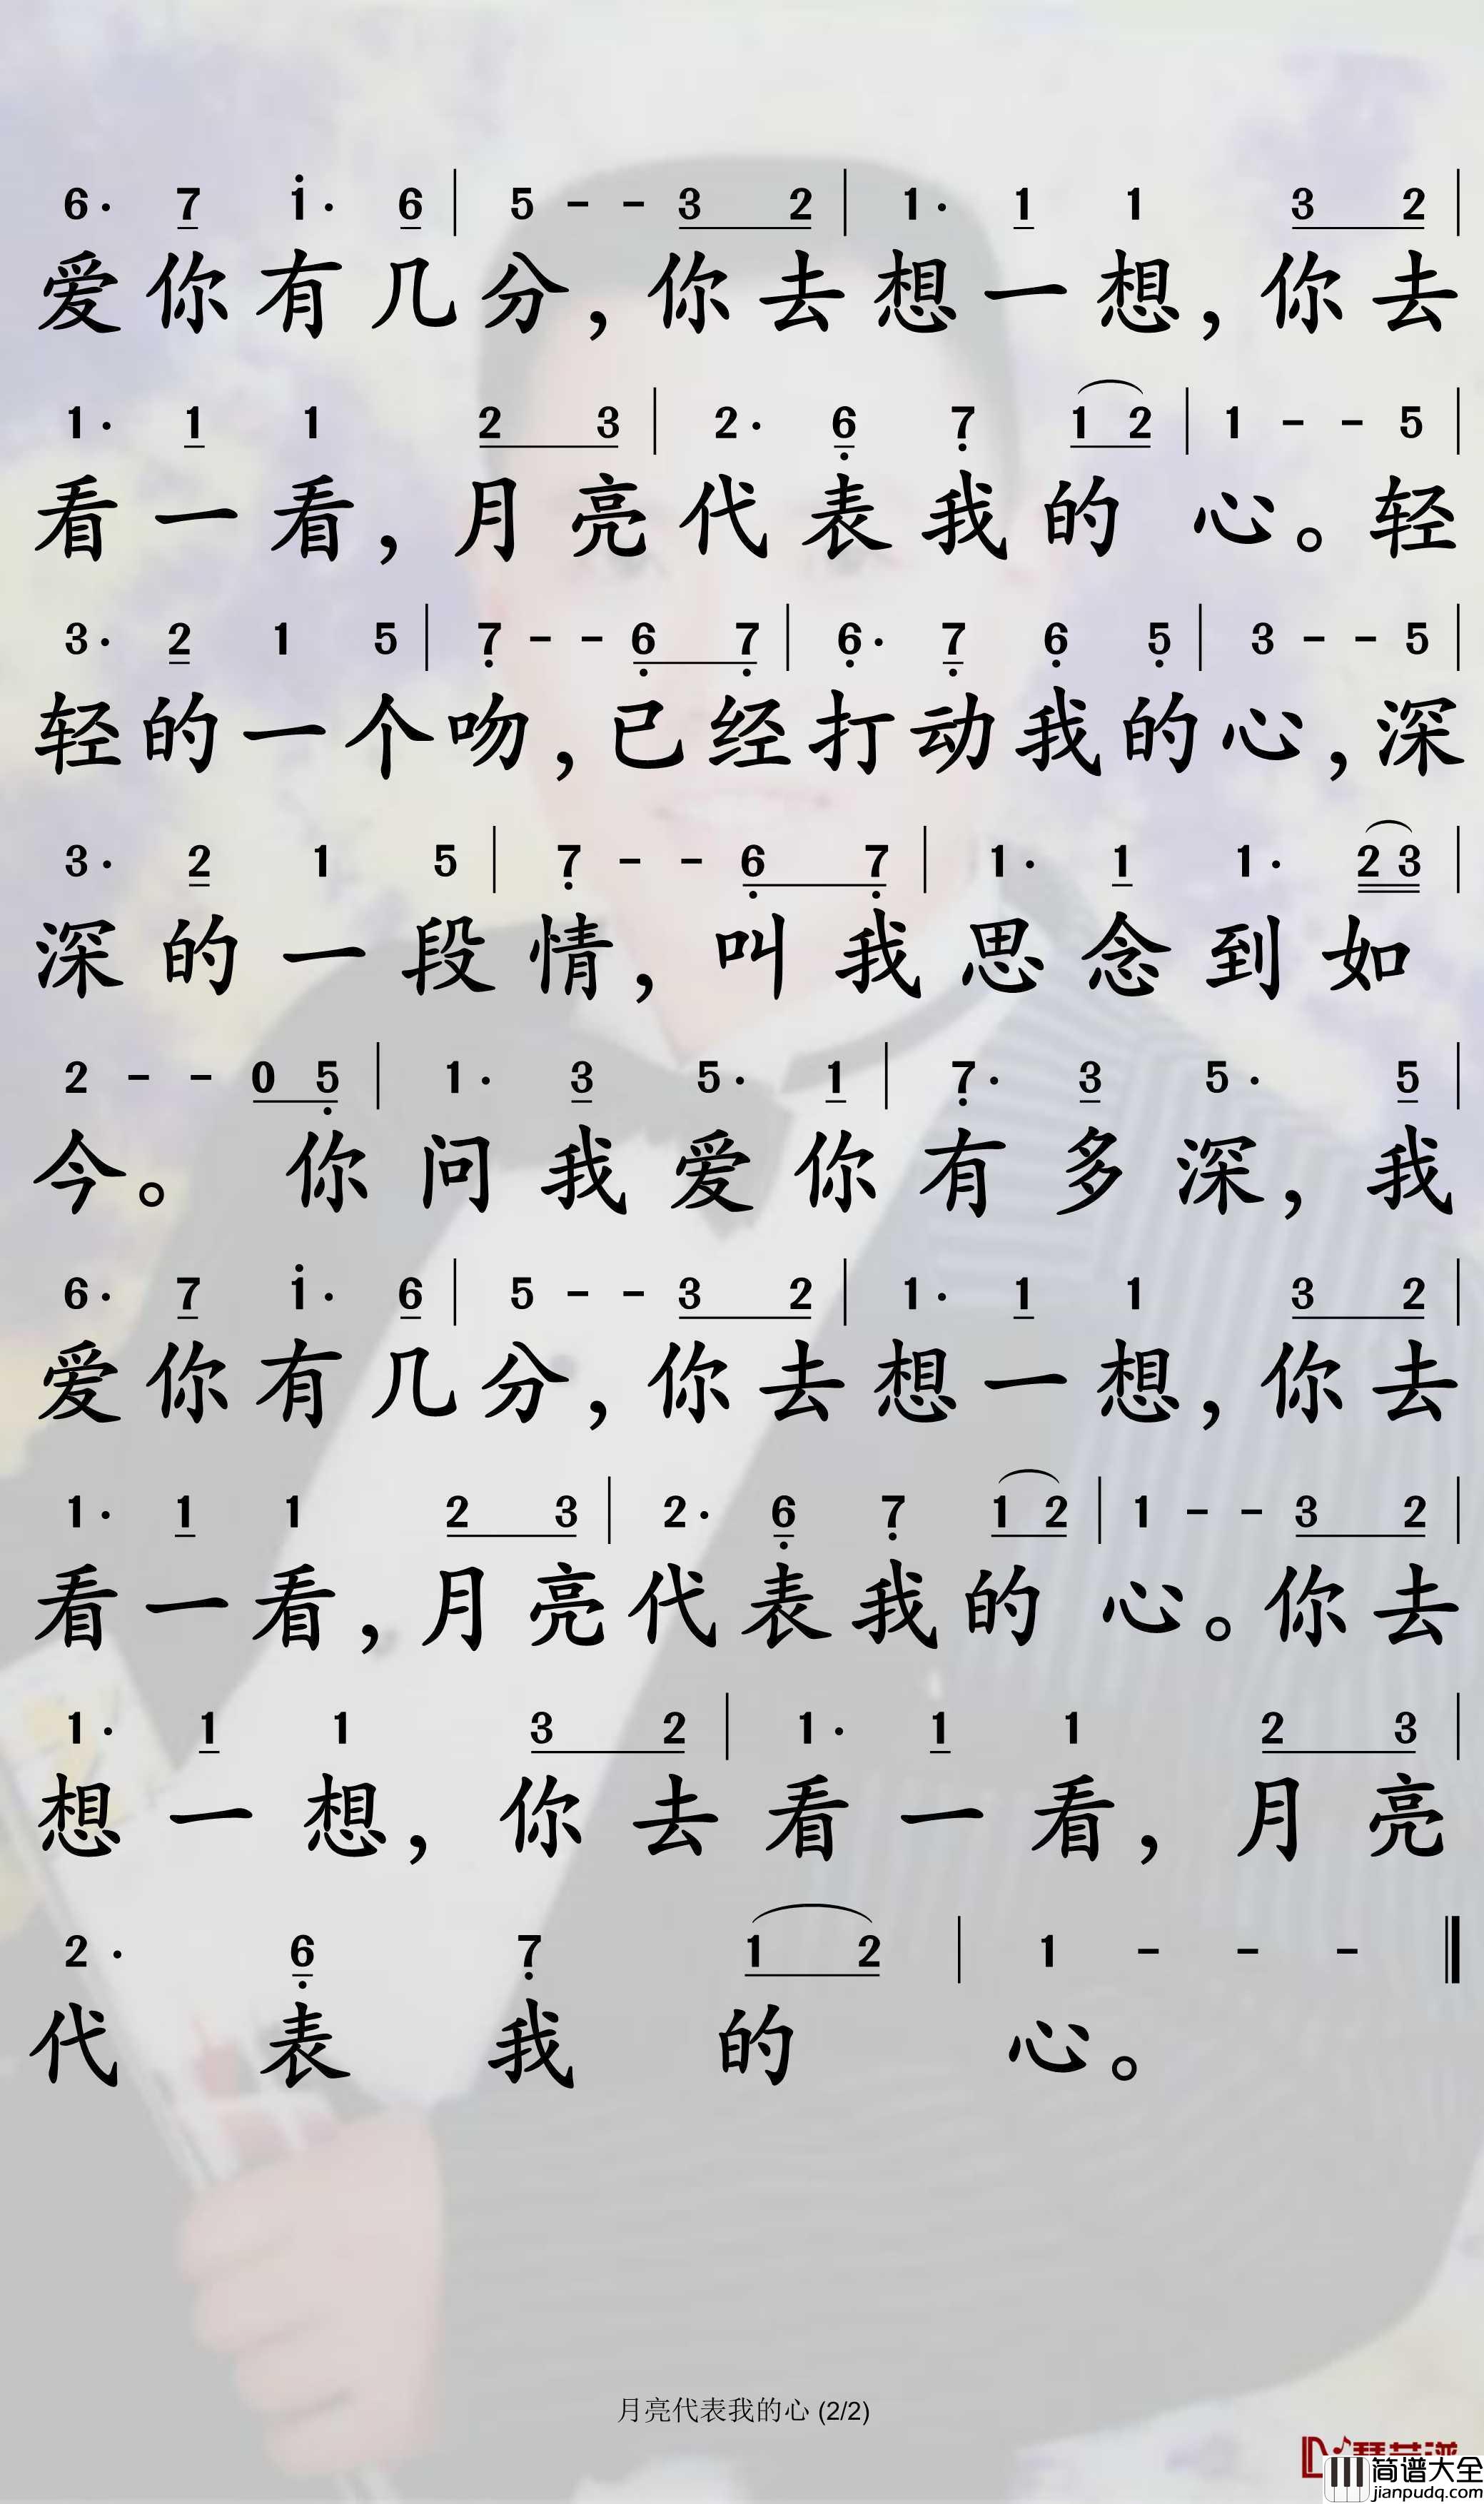 6· 7 i· 6 | 5 - - 3 2 | 1· 1 1 3 2 |
爱你有几分，你去想一想，你去
1· 1 1 2 3 | 2· 6 7 1 2 | 1 - - 5 |
看一看，月亮代表我的心。轻
3· 2 1 5 | 7 - - 6 7 | 6· 7 6 5 | 3 - - 5 |
轻的一个吻，已经打动我的心，深
3· 2 1 5 | 7 - - 6 7 | 1· 1 1· 2 3 |
深的一段情，叫我思念到如
2 - - 0 5 | 1· 3 5· 1 | 7· 3 5· 5 |
今。你问我爱你有多深，我
6· 7 i· 6 | 5 - - 3 2 | 1· 1 1 3 2 |
爱你有几分，你去想一想，你去
1· 1 1 2 3 | 2· 6 7 1 2 | 1 - - 3 2 |
看一看，月亮代表我的心。你去
1· 1 1 3 2 | 1· 1 1 2 3 |
想一想，你去看一看，月亮
2· 6 7 1 2 | 1 - - - ‖
代表我的心。
月亮代表我的心 (2/2)
简谱大全
jianpudq.com